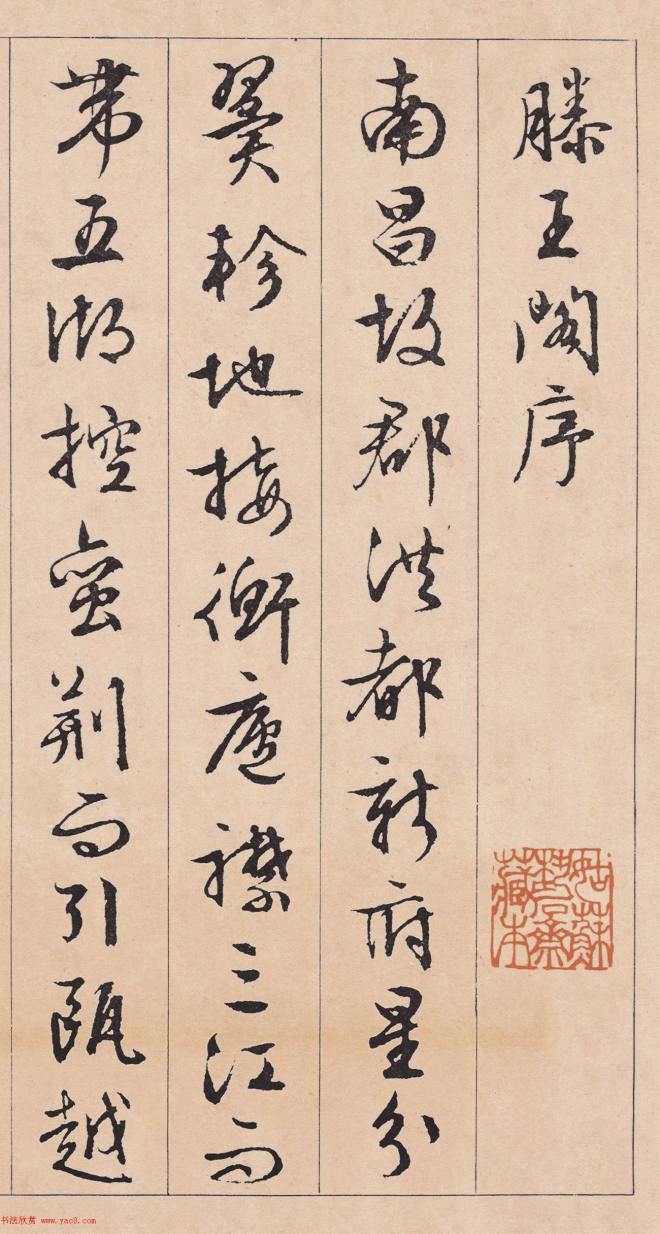 滕王閣序
南昌故郡洪都新府星分
翼軫地接衡廬襟三江而
帶五湖控蠻荆而引甌越
姑蘇
藏本
书法欣赏 www.yac8.com